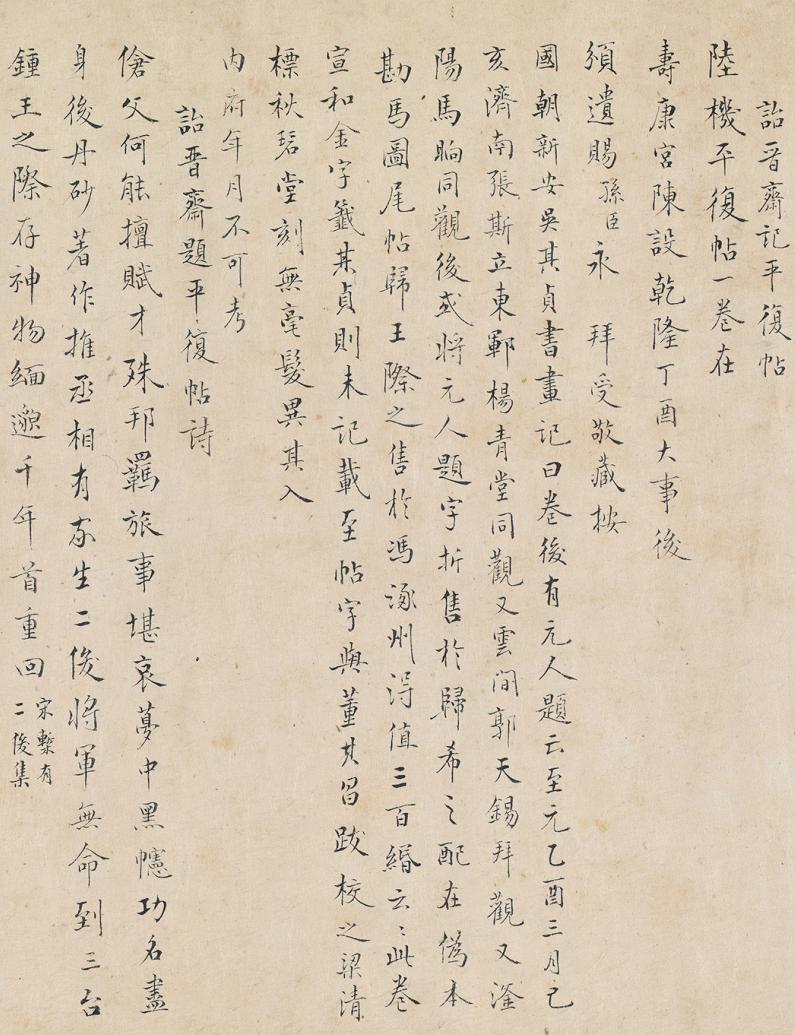 詒晋齋記平復帖
陸機平復帖一卷在
壽康宮陳設乾隆丁酉大事後
頒遺賜孫臣永 拜受敬藏按
國朝新安吳其貞書畫記曰卷後有元人題云至元乙酉三月己
亥濟南張斯立東鄆楊青堂同觀又雲間郭天錫拜觀又滏
陽馬昫同觀後或將元人題字折售於歸希之配在偽本
勘馬圖尾帖歸王際之售於馮涿州淂值三百緡云〻此卷
宣和金字籤其貞則未記載至帖字與董其昌跋校之梁清
標秋碧堂刻無毫髮異其入
內府年月不可考
詒晋齋題平復帖詩
傖父何能擅賦才殊邦羈旅事堪哀夢中黑幰功名盡
身後丹砂著作推丞相有家生二俊將軍無命到三台
鍾王之際存神物緬邈千年首重回宋槧有二俊集